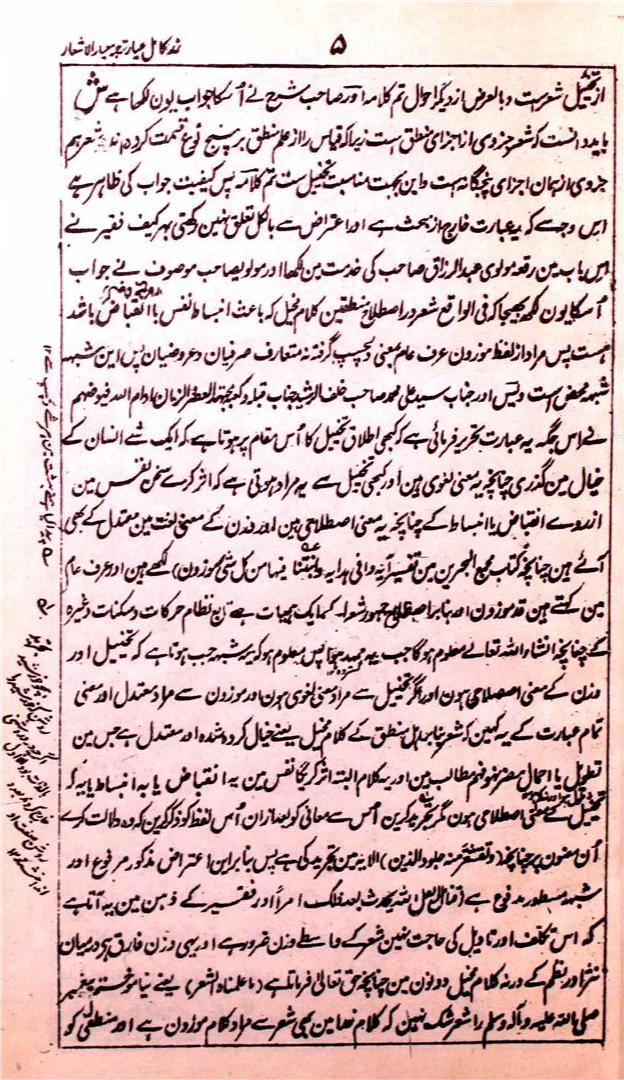 زر کامل عیار ترجمہ معیار الاشعار
۵
از تخییل شعرست و بالعرض از دیگر احوال تم کلامہ اور صاحب شرح نے اُسکا جواب یون لکھا ہے ش
باید دانست کہ شعر جزوی از اجزای منطق ست زیرا کہ قیاس را از علم منطق بر پنج نوع قسمت کردہ اند شعر ہم
جزوی از ہمان اجزای پنجگانہ ست و این بجہت مناسبت تخییل ست تم کلامہ پس کیفیت جواب کی ظاہر ہے
اس وجہ سے کہ یہ عبارت خارج از بحث ہے اور اعتراض سے بالکل تعلق نہین رکھتی بہر کیف فقیر نے
اس باب مین رقعہ مولوی عبدالرزاق صاحب کی خدمت مین لکھا اور مولویصاحب موصوف نے جواب
اُسکا یون لکھ بھیجا کہ فی الواقع شعر در اصطلاح منطقیین کلام مخیل کہ باعث انبساط نفس یا انقباض باشد
ہست پس مراد از لفظ موزون عرف عام بمعنی دلچسپ گرفتہ نہ متعارف صرفیان و عروضیان پس این شبہہ
شبہہ محض ست و بس اور جناب سید علی محمد صاحب خلف الرشید جناب قبلہ و کعبہ مجتہد العصر والزمان ادام اللہ فیوضہم
نے اس جگہ یہ عبارت تحریر فرمائی ہے کہ کبھی اطلاق تخییل کا اُس مقام پر ہوتا ہے کہ ایک شے انسان کے
خیال مین گذری چنانچہ یہ معنی لغوی ہین اور کبھی تخییل سے یہ مراد ہوتی ہے کہ اثر کرے سخن نفس مین
از روے انقباض یا انبساط کے چنانچہ یہ معنی اصطلاحی ہین اور وزن کے معنی لغت مین معتدل کے بھی
آئے ہین چنانچہ کتاب مجمع البحرین مین تفسیر آیہ وافی ہدایہ (وانبتنا فیہا من کل شئ موزون) لکھے ہین اور عرف عام
مین کہتے ہین قد موزون اور بنا بر اصطلاح جمہور شعرا کے ایک ہیات ہے تابع نظام حرکات و سکنات وغیرہ
کے چنانچہ انشاء اللہ تعالے معلوم ہوگا جب یہ ممہد ہوا پس معلوم ہو کہ یہ شبہہ جب ہوتا ہے کہ تخییل اور
وزن کے معنی اصطلاحی ہون اور اگر تخییل سے مراد معنی لغوی ہون اور موزون سے مراد معتدل اور معنی
تمام عبارت کے یہ کہین کہ شعر بنا بر اہل منطق کے کلام مخیل یعنے خیال کردہ شدہ اور معتدل ہے جس مین
تطویل یا اجمال مضر فہم مطالب ہین اور یہ کلام البتہ اثر کریگا نفس مین بہ انقباض یا بہ انبساط یا یہ کہ
تخییل کے معنی اصطلاحی ہون مگر تجرید کرین اُس سے معانی کو بعد ازان اُس لفظ کو ذکر کرین کہ وہ دلالت کرے
اُن معنون پر چنانچہ (تقشعر منہ جلود الذین) الآیہ مین تجرید کی ہے پس بنا بر این اعتراض مذکور مرفوع اور
شبہہ مسطور مدفوع ہے (فتامل لعل اللہ یحدث بعد ذلک امراً) اور فقیر کے ذہن مین یہ آتا ہے
کہ اس تکلف اور تاویل کی حاجت نہین شعر کے واسطے وزن ضرور ہے اور یہی وزن فارق ہی درمیان
نثر اور نظم کے ورنہ کلام مخیل دونون مین چنانچہ حق تعالیٰ فرماتا ہے (وما علمناہ الشعر) یعنے نیاموختم پیغمبر
صلی اللہ علیہ و آلہ وسلم را شعر شک نہین کہ کلام خدا مین بھی شعر سے مراد کلام موزون ہے اور منطقی کو